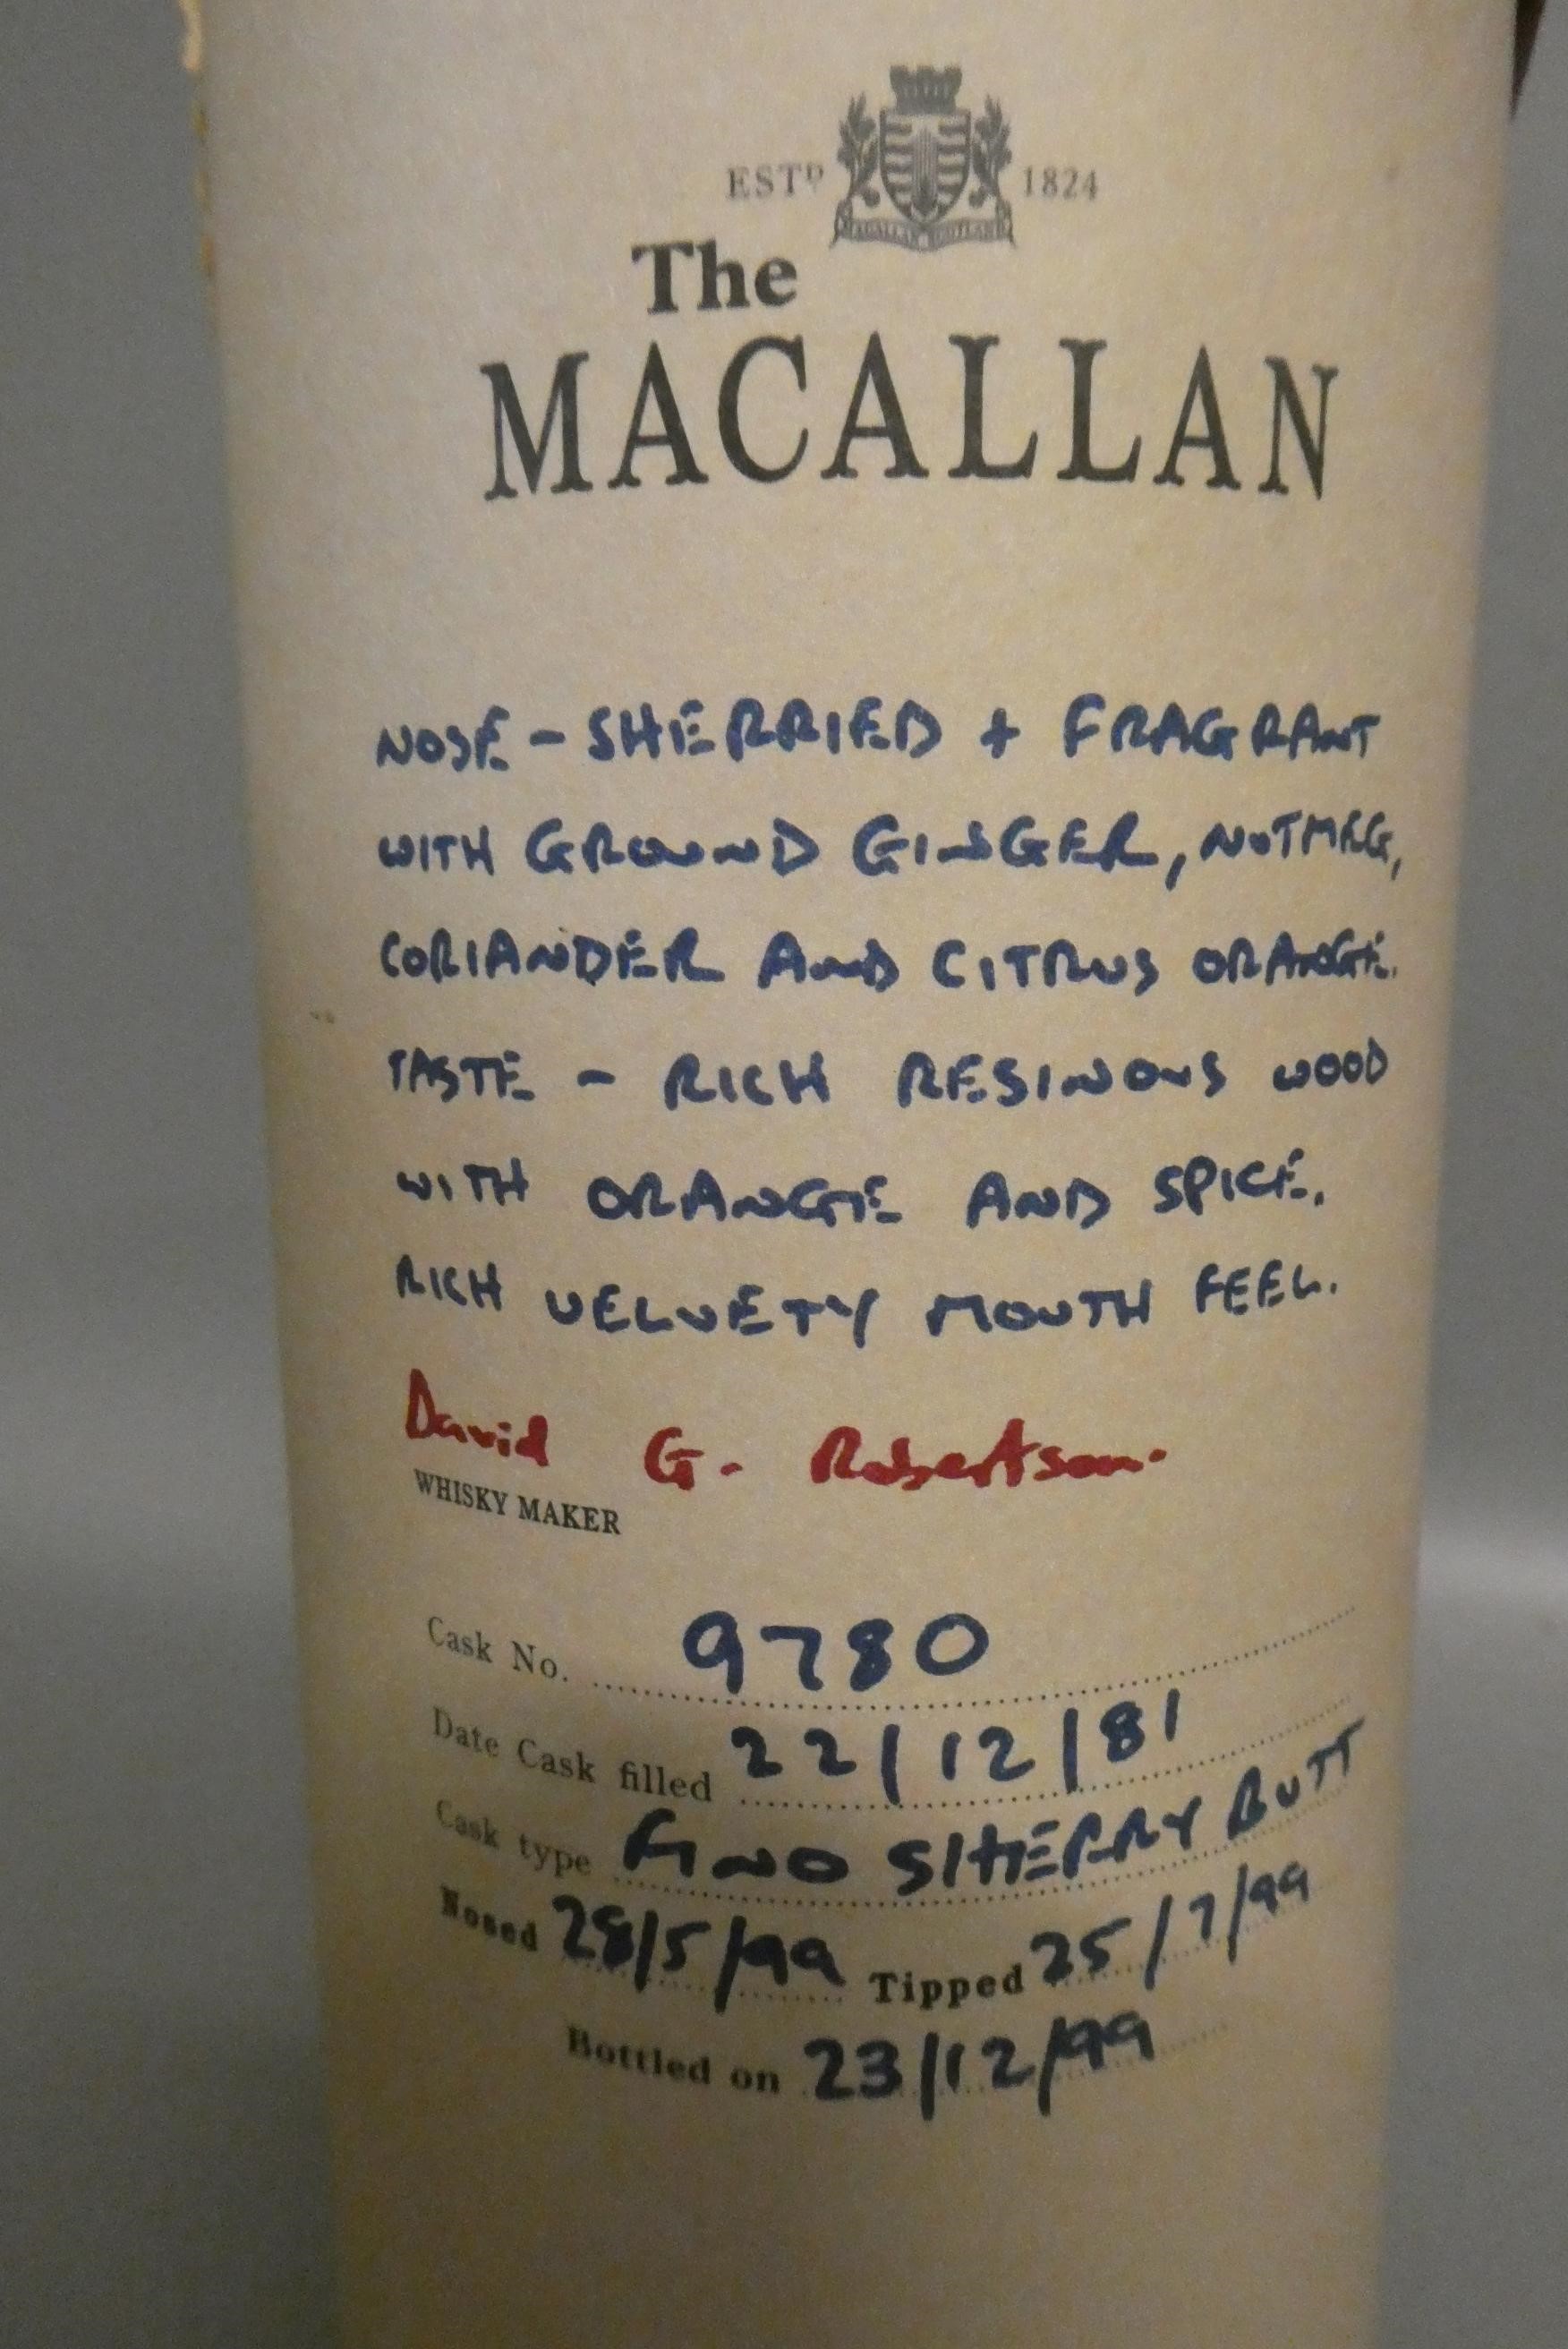 ESTD 1824
MACALLAN SCOTLAND
The
MACALLAN
NOSE - SHERRIED + FRAGRANT
WITH GROUND GINGER, NUTMEG,
CORIANDER AND CITRUS ORANGE.
TASTE - RICH RESINOUS WOOD
WITH ORANGE AND SPICE.
RICH VELVETY MOUTH FEEL.
David G. Robertson.
WHISKY MAKER
Cask No. 9780
Date Cask filled 22/12/81
Cask type FINO SHERRY BUTT
Nosed 28/5/99 Tipped 25/7/99
Bottled on 23/12/99